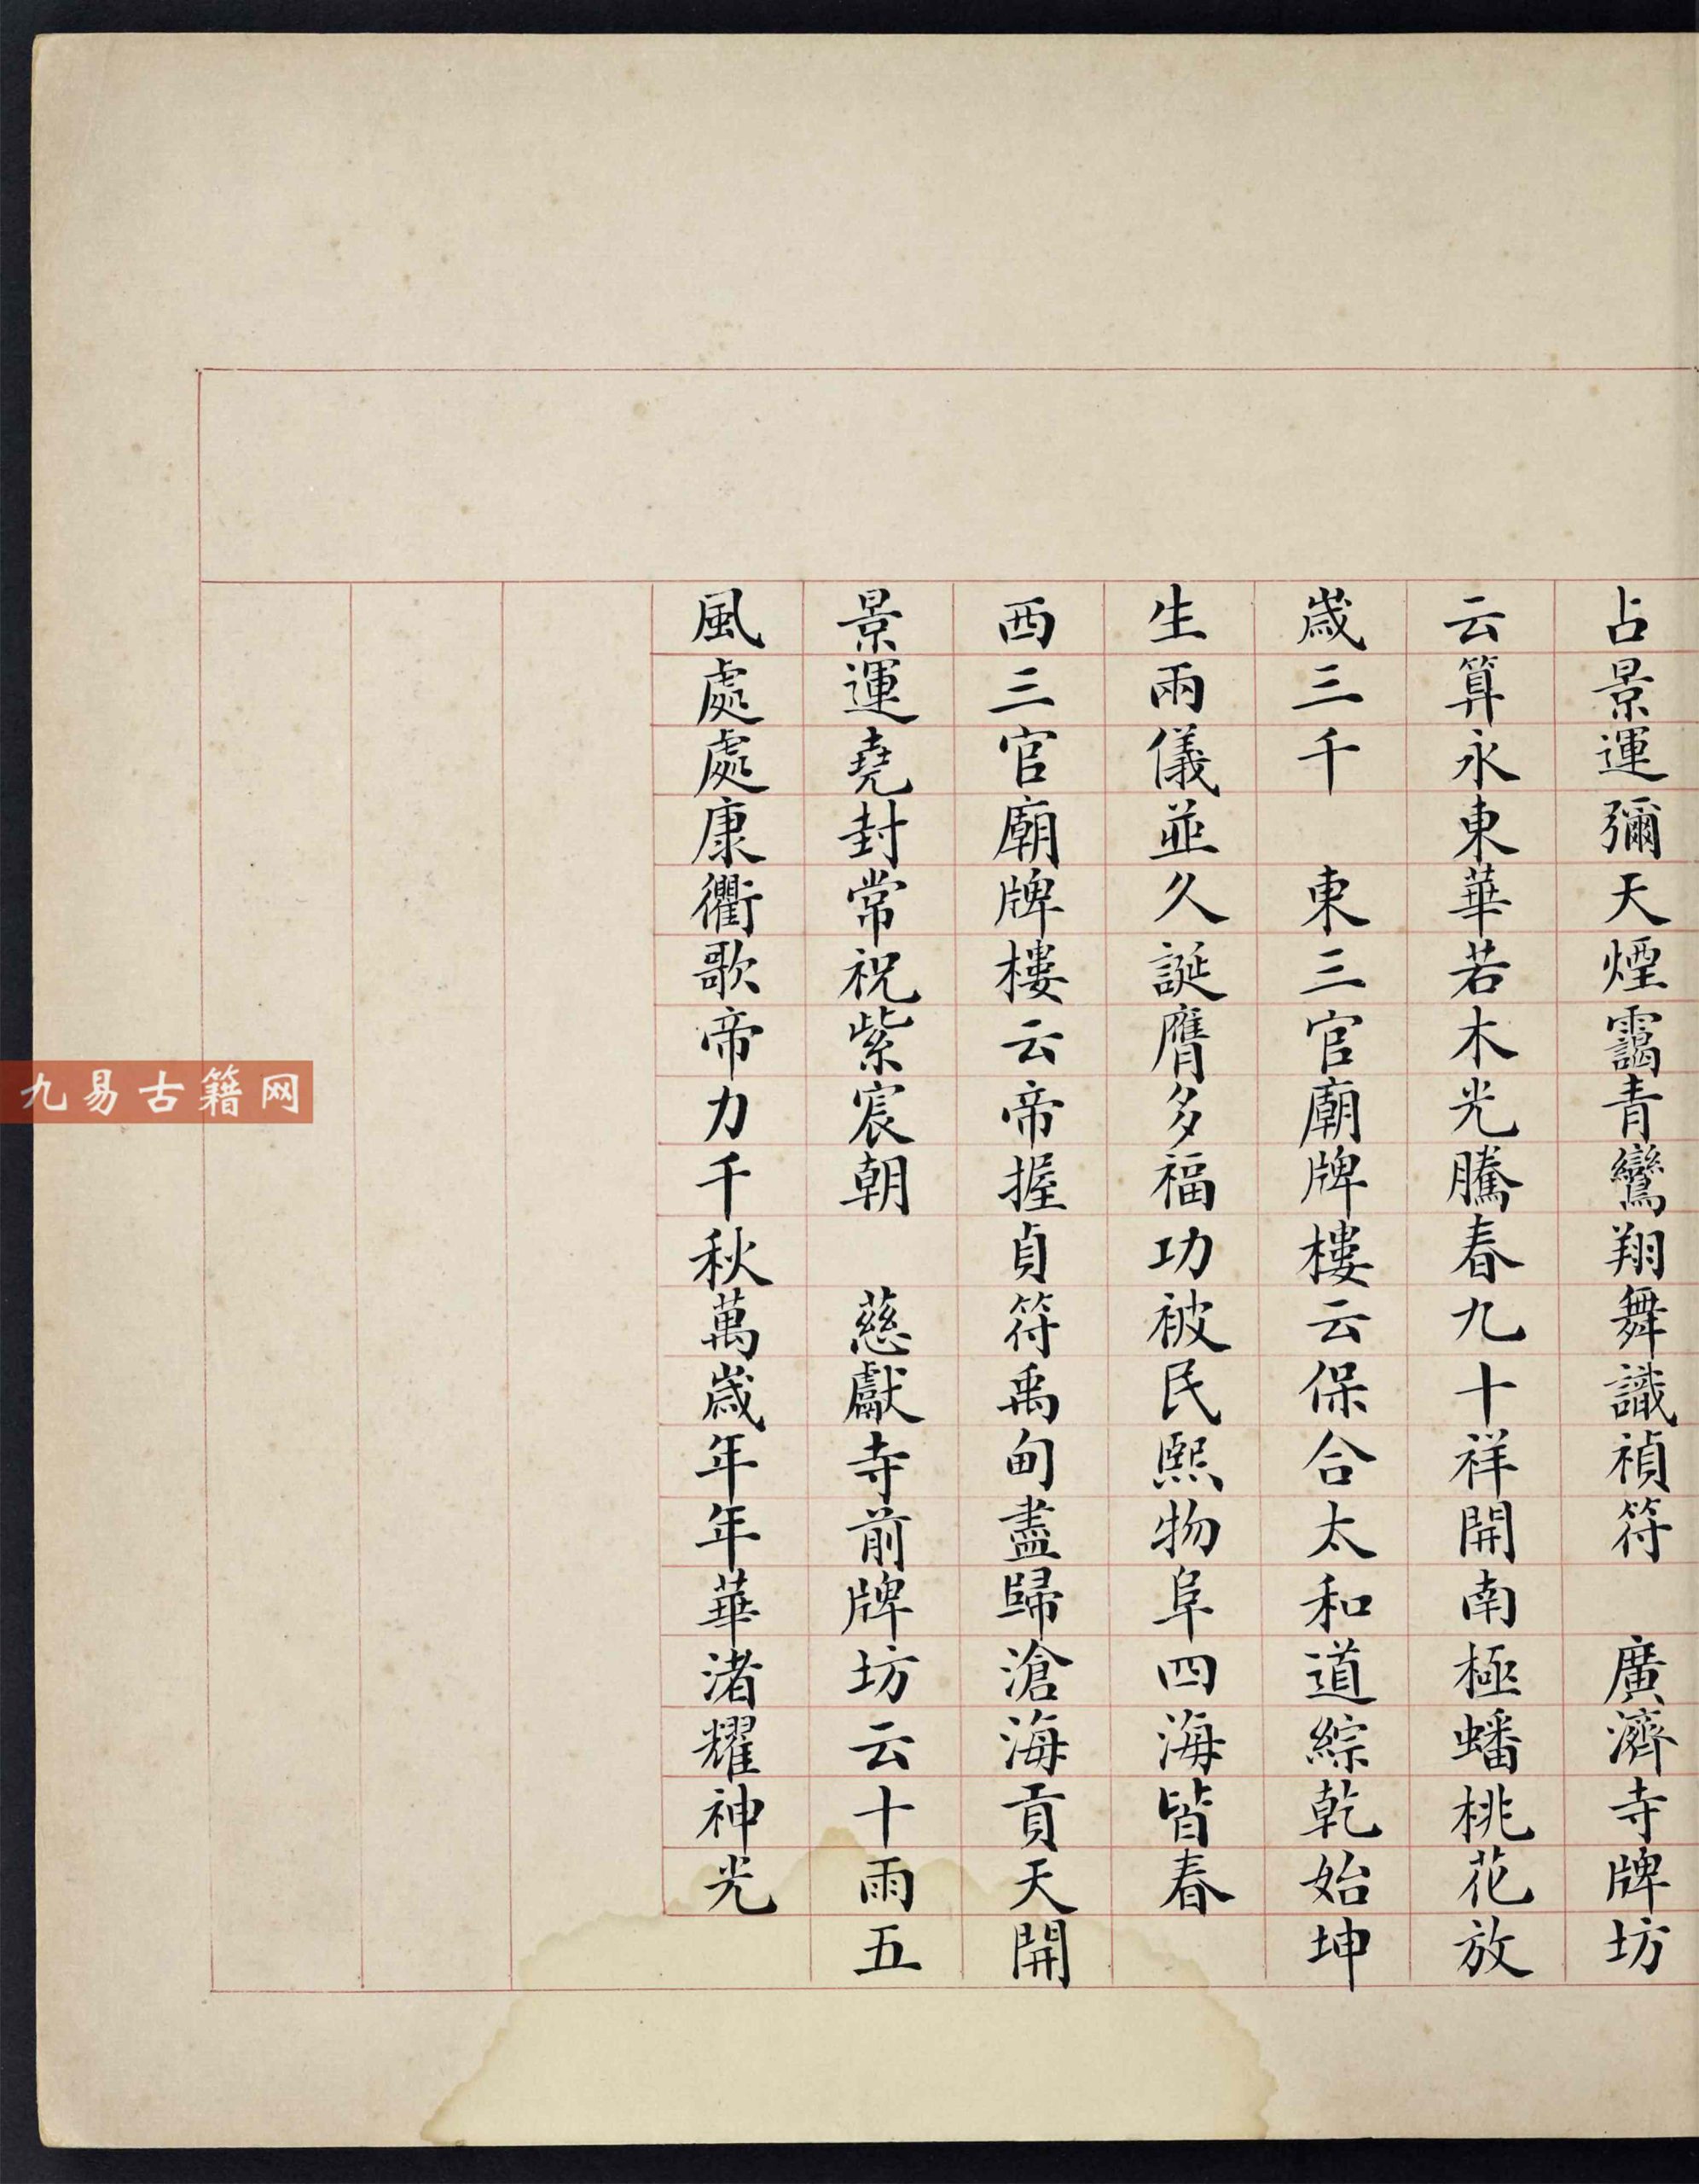 占景運彌天煙靄青鸞翔舞識禎符　廣濟寺牌坊
云算永東華若木光騰春九十祥開南極蟠桃花放
歲三千　東三官廟牌樓云保合太和道綜乾始坤
生兩儀並久誕膺多福功被民熙物阜四海皆春
西三官廟牌樓云帝握貞符禹甸盡歸滄海貢天開
景運堯封常祝紫宸朝　慈獻寺前牌坊云十雨五
風處處康衢歌帝力千秋萬歲年年華渚耀神光
九易古籍网